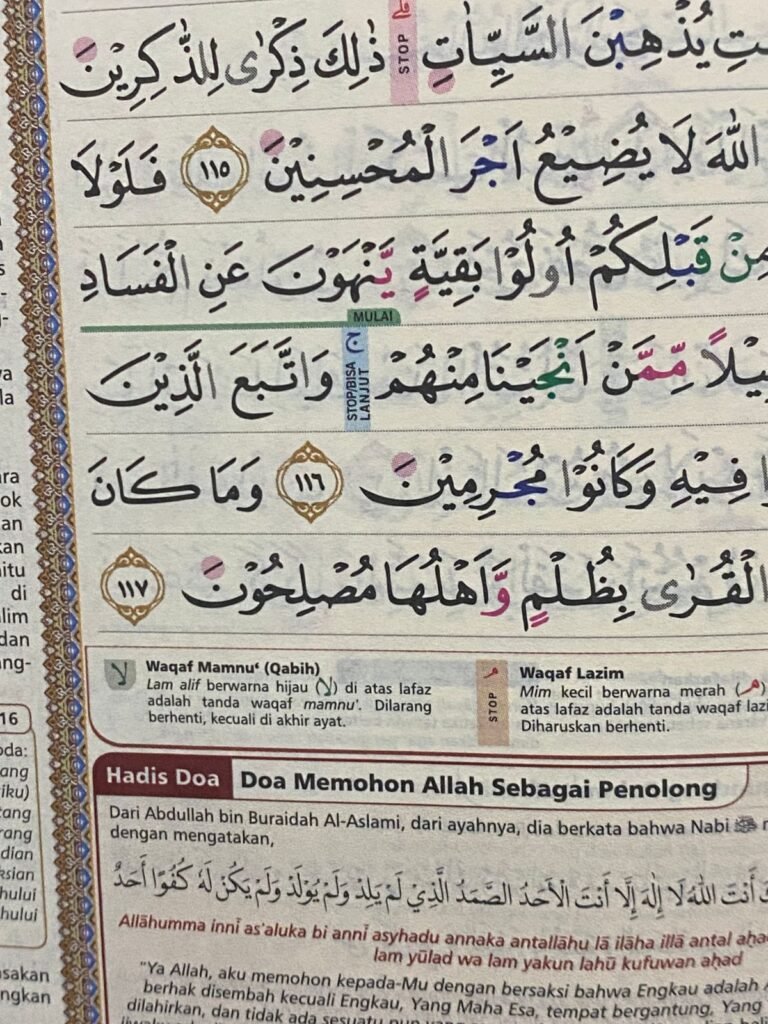 يُذْهِبْنَ السَّيِّاٰتِۗ ذٰلِكَ ذِكْرٰى لِلذّٰكِرِيْنَ
STOP
قلے
اللّٰهَ لَا يُضِيْعُ اَجْرَ الْمُحْسِنِيْنَ ١١٥ فَلَوْلَا
مِنْ قَبْلِكُمْ اُولُوْا بَقِيَّةٍ يَّنْهَوْنَ عَنِ الْفَسَادِ
MULAI
مِّمَّنْ اَنْجَيْنَا مِنْهُمْ ۚ وَاتَّبَعَ الَّذِيْنَ
STOP/BISA LANJUT
فِيْهِ وَكَانُوْا مُجْرِمِيْنَ ١١٦ وَمَا كَانَ
الْقُرٰى بِظُلْمٍ وَّاَهْلُهَا مُصْلِحُوْنَ ١١٧
لا
Waqaf Mamnu‘ (Qabih)
Lam alif berwarna hijau (لا) di atas lafaz
adalah tanda waqaf mamnu‘. Dilarang
berhenti, kecuali di akhir ayat.
STOP
Waqaf Lazim
Mim kecil berwarna merah (م)
atas lafaz adalah tanda waqaf
Diharuskan berhenti.
Hadis Doa
Doa Memohon Allah Sebagai Penolong
Dari Abdullah bin Buraidah Al-Aslami, dari ayahnya, dia berkata bahwa Nabi ﷺ
dengan mengatakan,
أَنْتَ اللّٰهُ لَا إِلٰهَ إِلَّا أَنْتَ الْأَحَدُ الصَّمَدُ الَّذِيْ لَمْ يَلِدْ وَلَمْ يُوْلَدْ وَلَمْ يَكُنْ لَهُ كُفُوًا أَحَدٌ
Allāhumma innī as'aluka bi annī asyhadu annaka antallāhu lā ilāha illā antal
lam yūlad wa lam yakun lahū kufuwan aḥad
"Ya Allah, aku memohon kepada-Mu dengan bersaksi bahwa Engkau adalah
berhak disembah kecuali Engkau, Yang Maha Esa, tempat bergantung, Yang
dilahirkan, dan tidak ada sesuatu pun yang